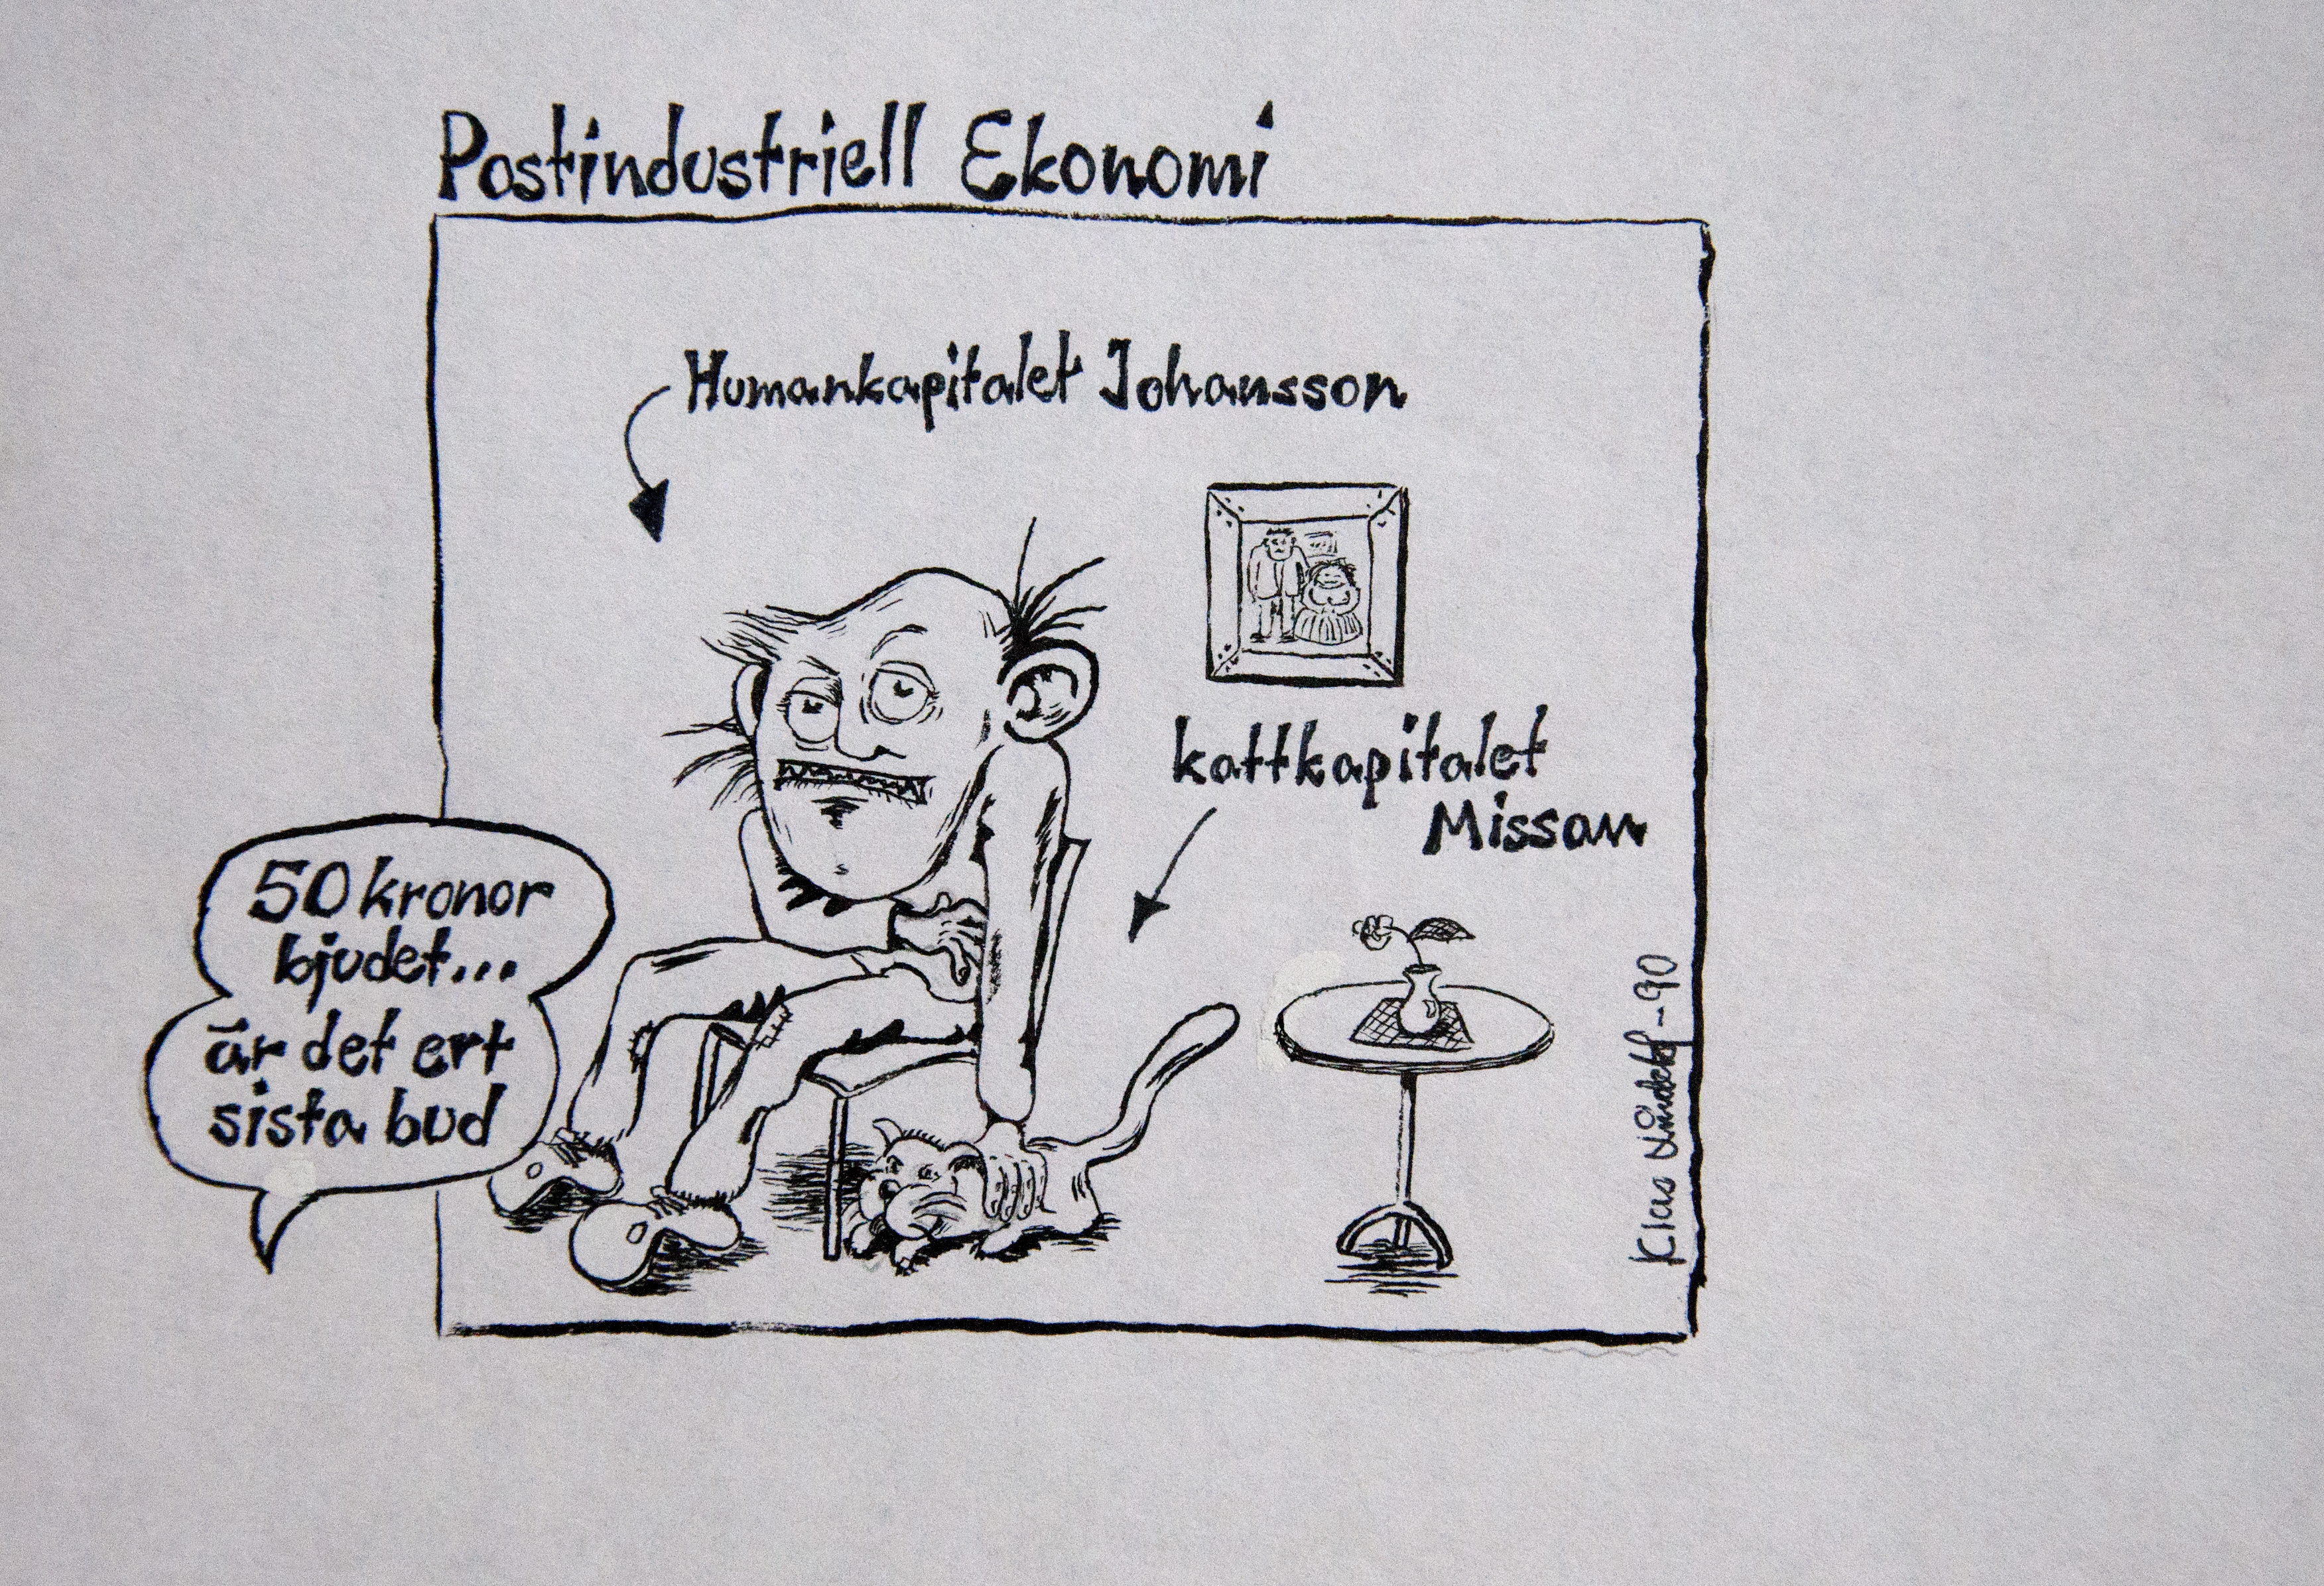 Postindustriell Ekonomi
Humankapitalet Johansson
kattkapitalet
Missan
50 kronor
bjudet...
är det ert
sista bud
Klas -90